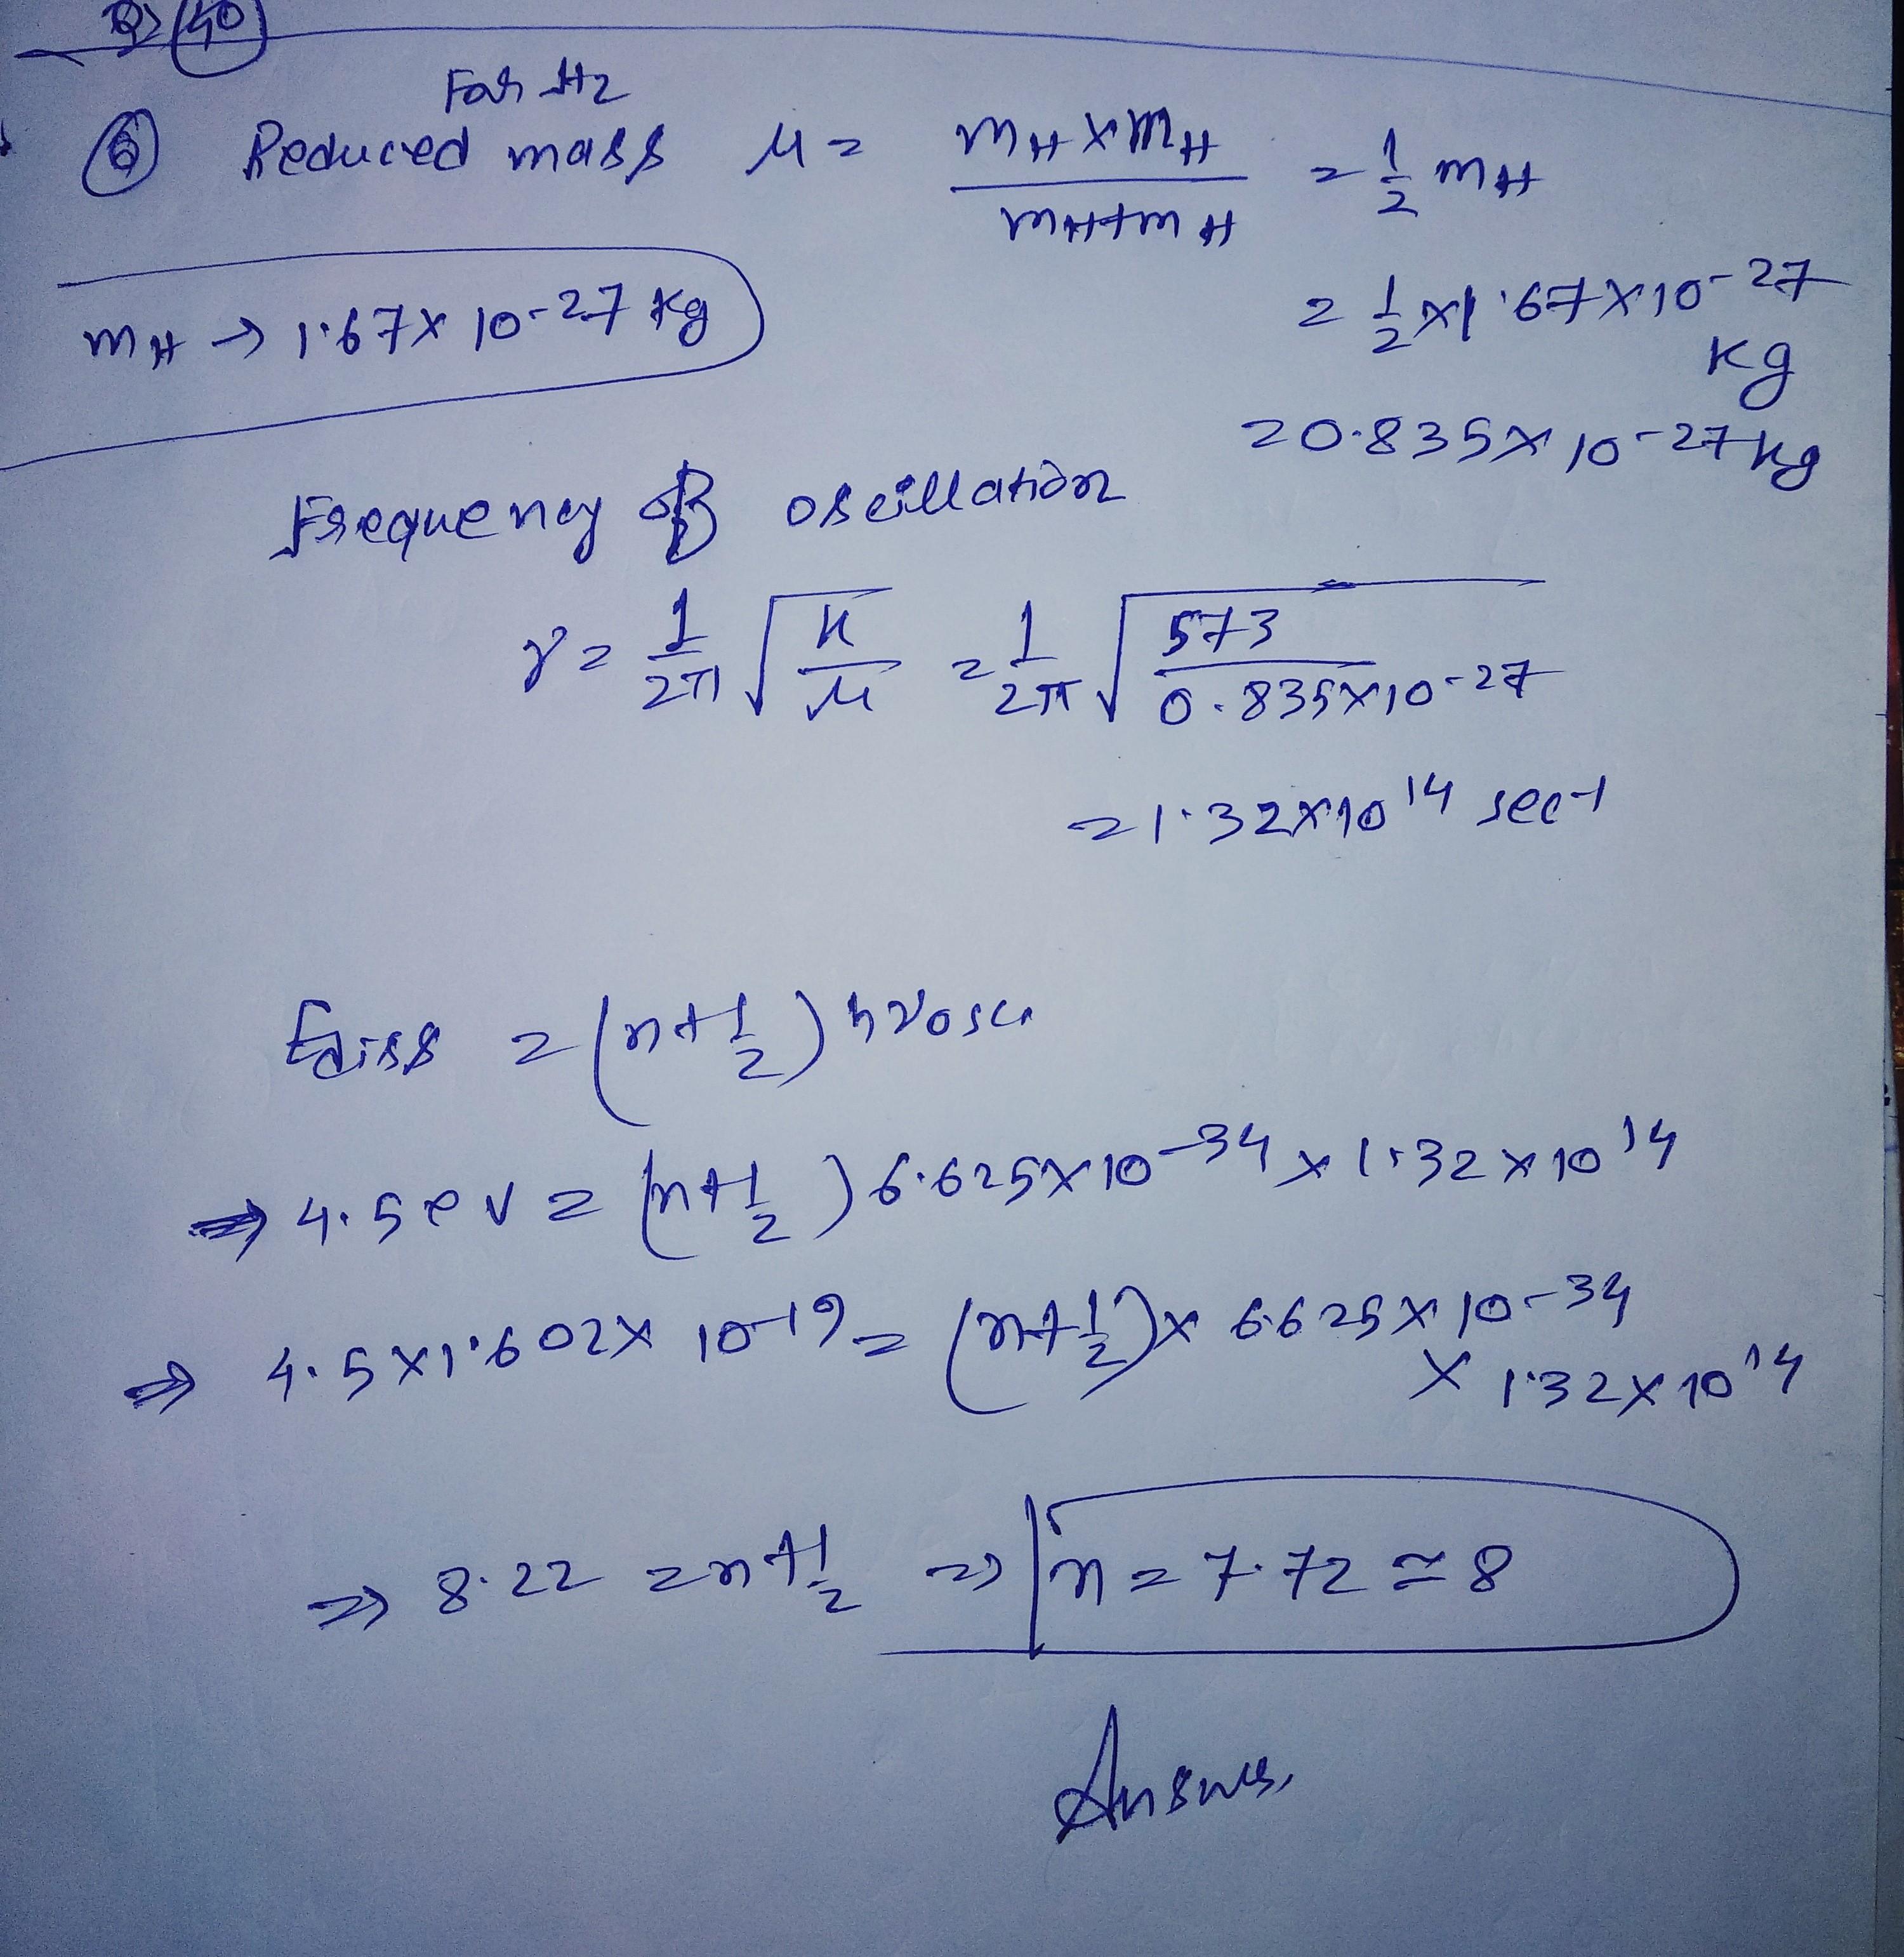 40
For H2
⑥ Reduced mass μ = mH × mH / mH + mH = 1/2 mH
mH → 1.67 × 10-27 kg
= 1/2 × 1.67 × 10-27 kg
= 0.835 × 10-27 kg
Frequency of oscillation
γ = 1/2π √(k/μ) = 1/2π √(573 / 0.835 × 10-27)
= 1.32 × 10^14 sec-1
Ediss = (n + 1/2) hνosc
⇒ 4.5 eV = (n + 1/2) 6.625 × 10-34 × 1.32 × 10^14
⇒ 4.5 × 1.602 × 10-19 = (n + 1/2) × 6.625 × 10-34
× 1.32 × 10^14
⇒ 8.22 = n + 1/2 ⇒ n = 7.72 ≃ 8
Answer